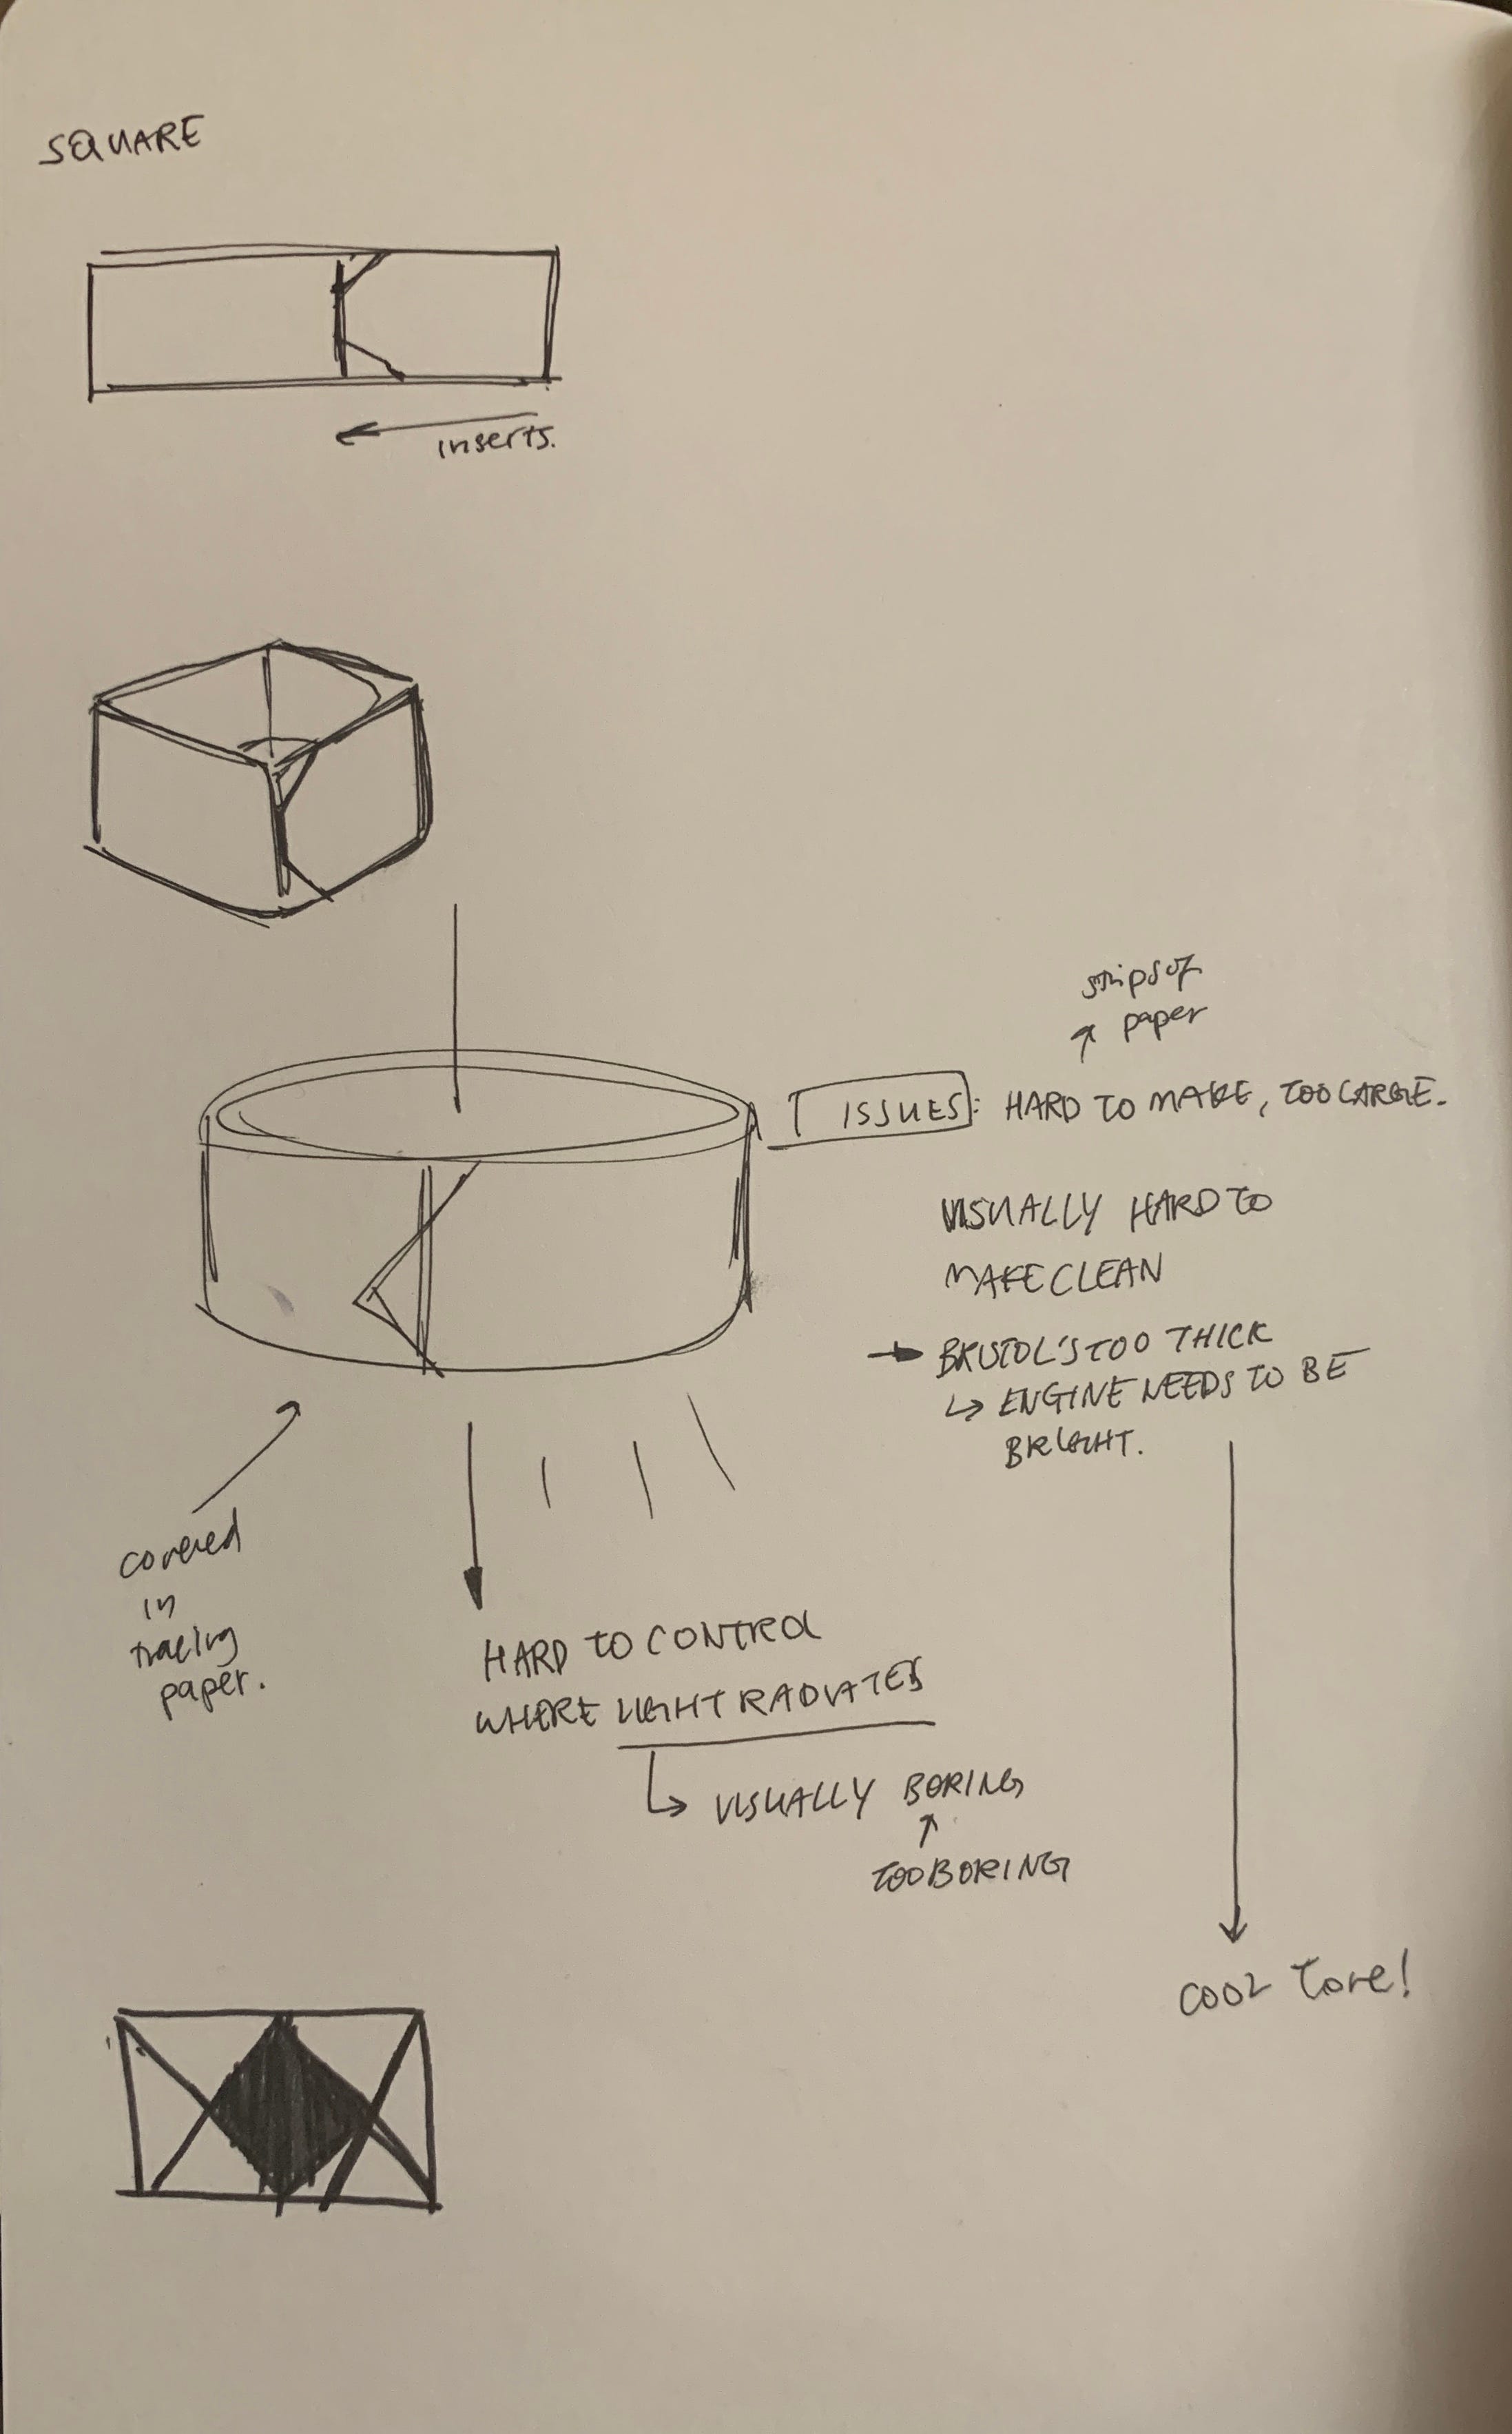 SQUARE
inserts.
strips of
paper
ISSUES: HARD TO MAKE, TOO LARGE.
VISUALLY HARD TO
MAKE CLEAN
BRISTOL'S TOO THICK
ENGINE NEEDS TO BE
BRIGHT.
covered
in
tracing
paper.
HARD TO CONTROL
WHERE LIGHT RADIATES
VISUALLY BORING
TOO BORING
COOL Tone!